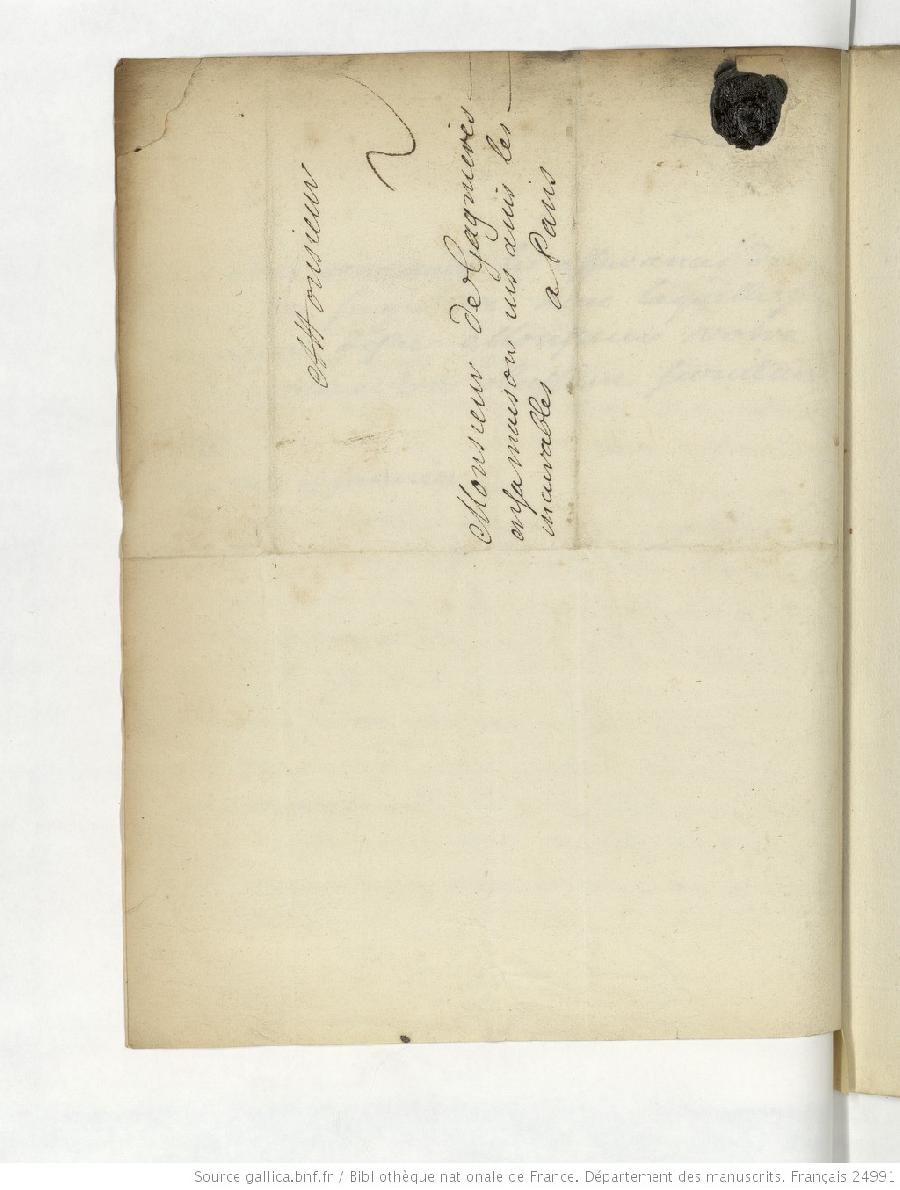 Monsieur
Monsieur de Gagnieres
en sa maison vis a vis les
incurables
a Paris
Source gallica.bnf.fr / Bibliothèque nationale de France. Département des manuscrits. Français 2499